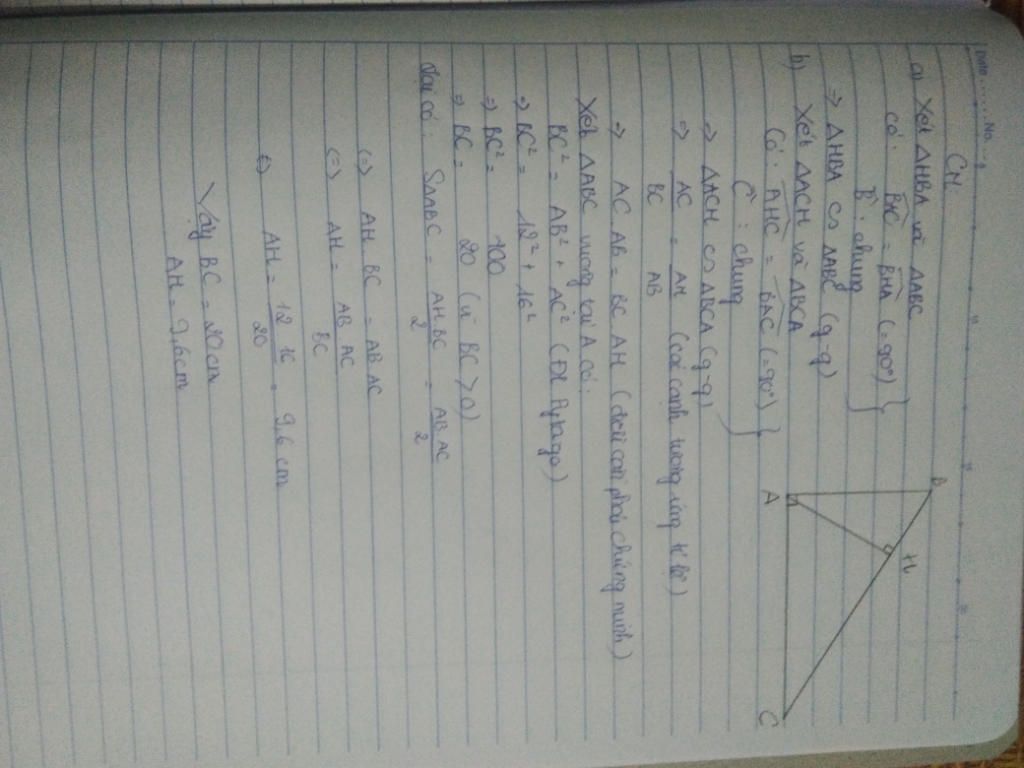 Date ........ No.
CM:
a) Xét ΔHBA và ΔABC
có: BAC = BHA (=90°)
B : chung
=> ΔHBA ∽ ΔABC (g-g)
b) Xét ΔACH và ΔBCA
Có: AHC = BAC (=90°)
C : chung
=> ΔACH ∽ ΔBCA (g-g)
=> AC/BC = AH/AB (các cạnh tương ứng tỉ lệ)
=> AC.AB = BC.AH (đccm phải chứng minh)
Xét ΔABC vuông tại A có:
BC² = AB² + AC² (ĐL Pytago)
=> BC² = 12² + 16²
=> BC² = 400
=> BC = 20 (vì BC > 0)
có: SΔABC = AH.BC/2 = AB.AC/2
(=) AH.BC = AB.AC
(=) AH = AB.AC/BC
(=) AH = 12.16/20 = 9,6 cm
Vậy BC = 20cm
AH = 9,6cm
B
H
A
C